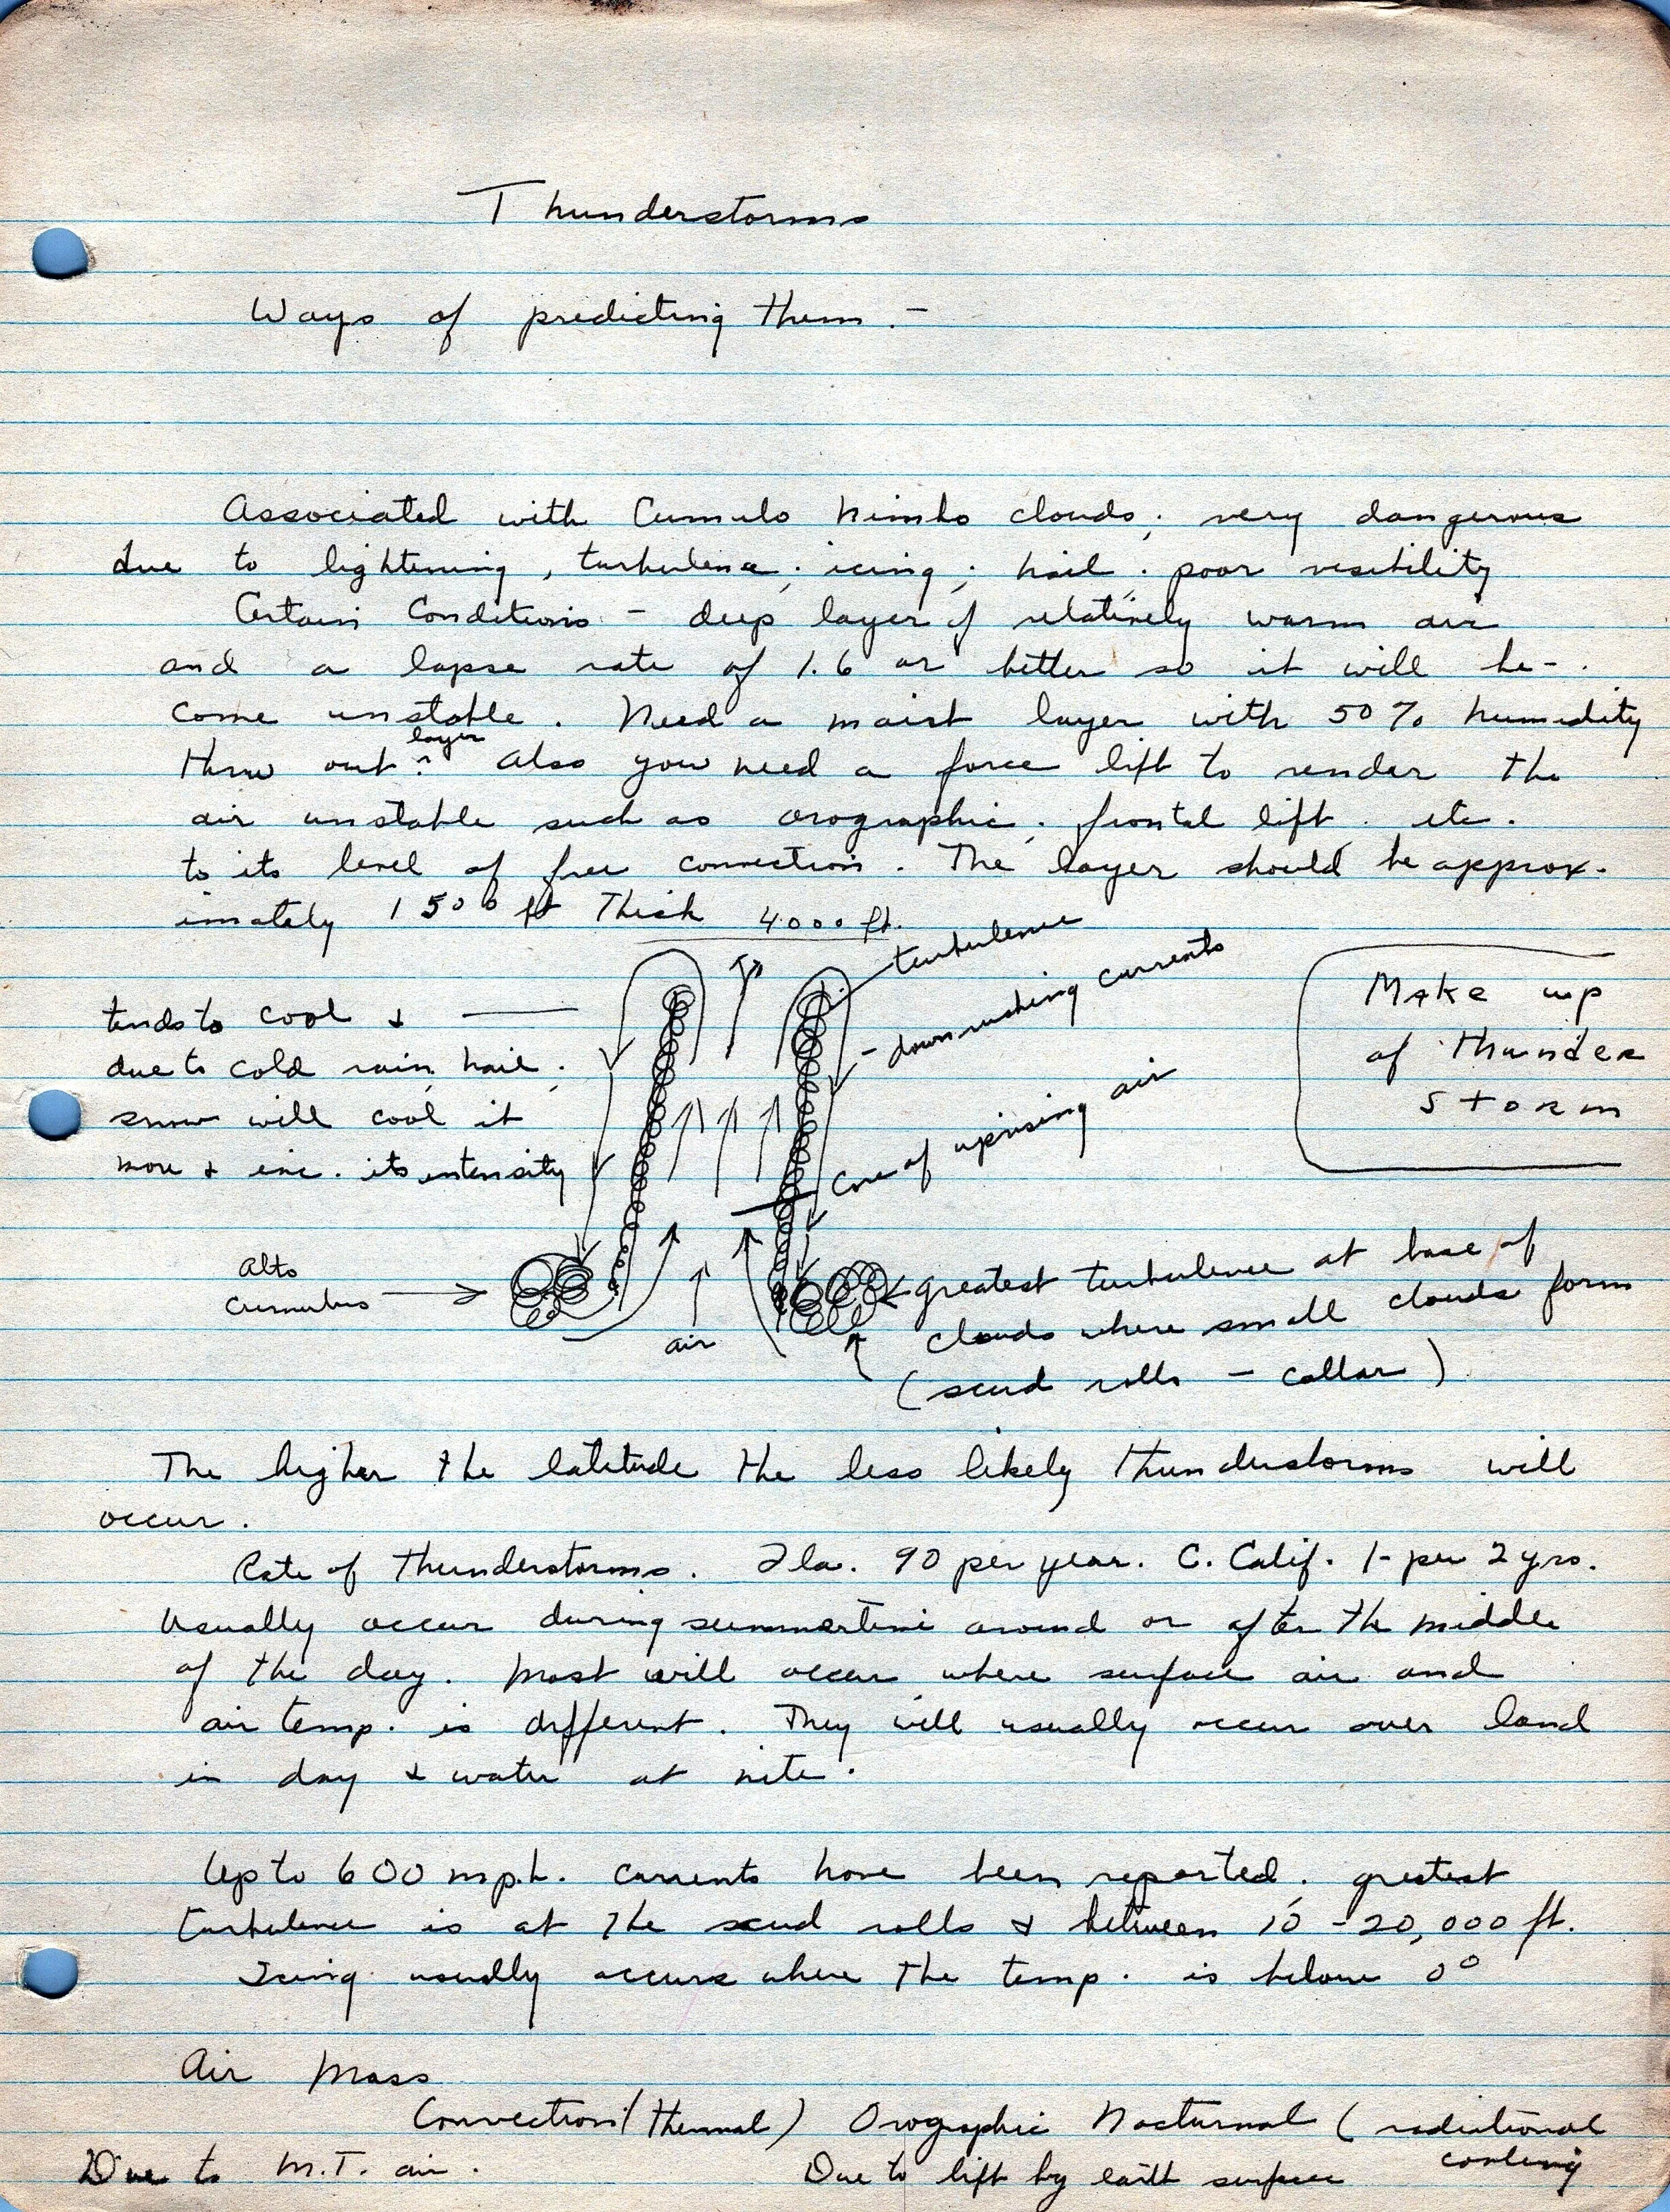 Thunderstorms
Ways of predicting them. -
Associated with Cumulo Nimbo clouds; very dangerous
due to lightening, turbulence; icing; hail; poor visibility
Certain Conditions - deep layer of relatively warm air
and a lapse rate of 1.6 or better so it will be-
come unstable. Need a moist layer with 50% humidity
layer
thru out. Also you need a force lift to render the
air unstable such as orographic, frontal lift, etc.
to its level of free convection. The layer should be approx-
imately 1500 ft Thick
4000 ft.
turbulence
down rushing currents
Make up
of Thunder
Storm
tends to cool &
due to cold rain, hail,
snow will cool it
more & inc. its intensity
Core of uprising air
Alto
Cumulus
air
greatest turbulence at base of
clouds where small clouds form
(scud rolls - collar)
The higher the latitude the less likely thunderstorms will
occur.
Rate of thunderstorms. Fla. 90 per year. C. Calif. 1- per 2 yrs.
Usually occur during summertime around or after the middle
of the day. Most will occur where surface air and
air temp. is different. They will usually occur over land
in day & water at nite.
Up to 600 mph. currents have been reported; greatest
turbulence is at the scud rolls & between 10 - 20,000 ft.
Icing usually occurs where the temp. is below 0°
Air Mass
Convection (Thermal) Orographic Nocturnal (radiational
cooling
Due to M.T. air. Due to lift by earth surface